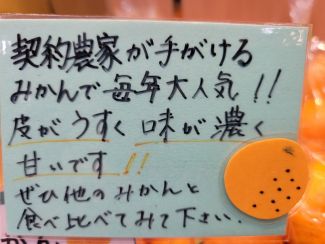 契約農家が手がける
みかんで毎年大人気!!
皮がうすく味が濃く
甘いです!!
ぜひ他のみかんと
食べ比べてみて下さい.